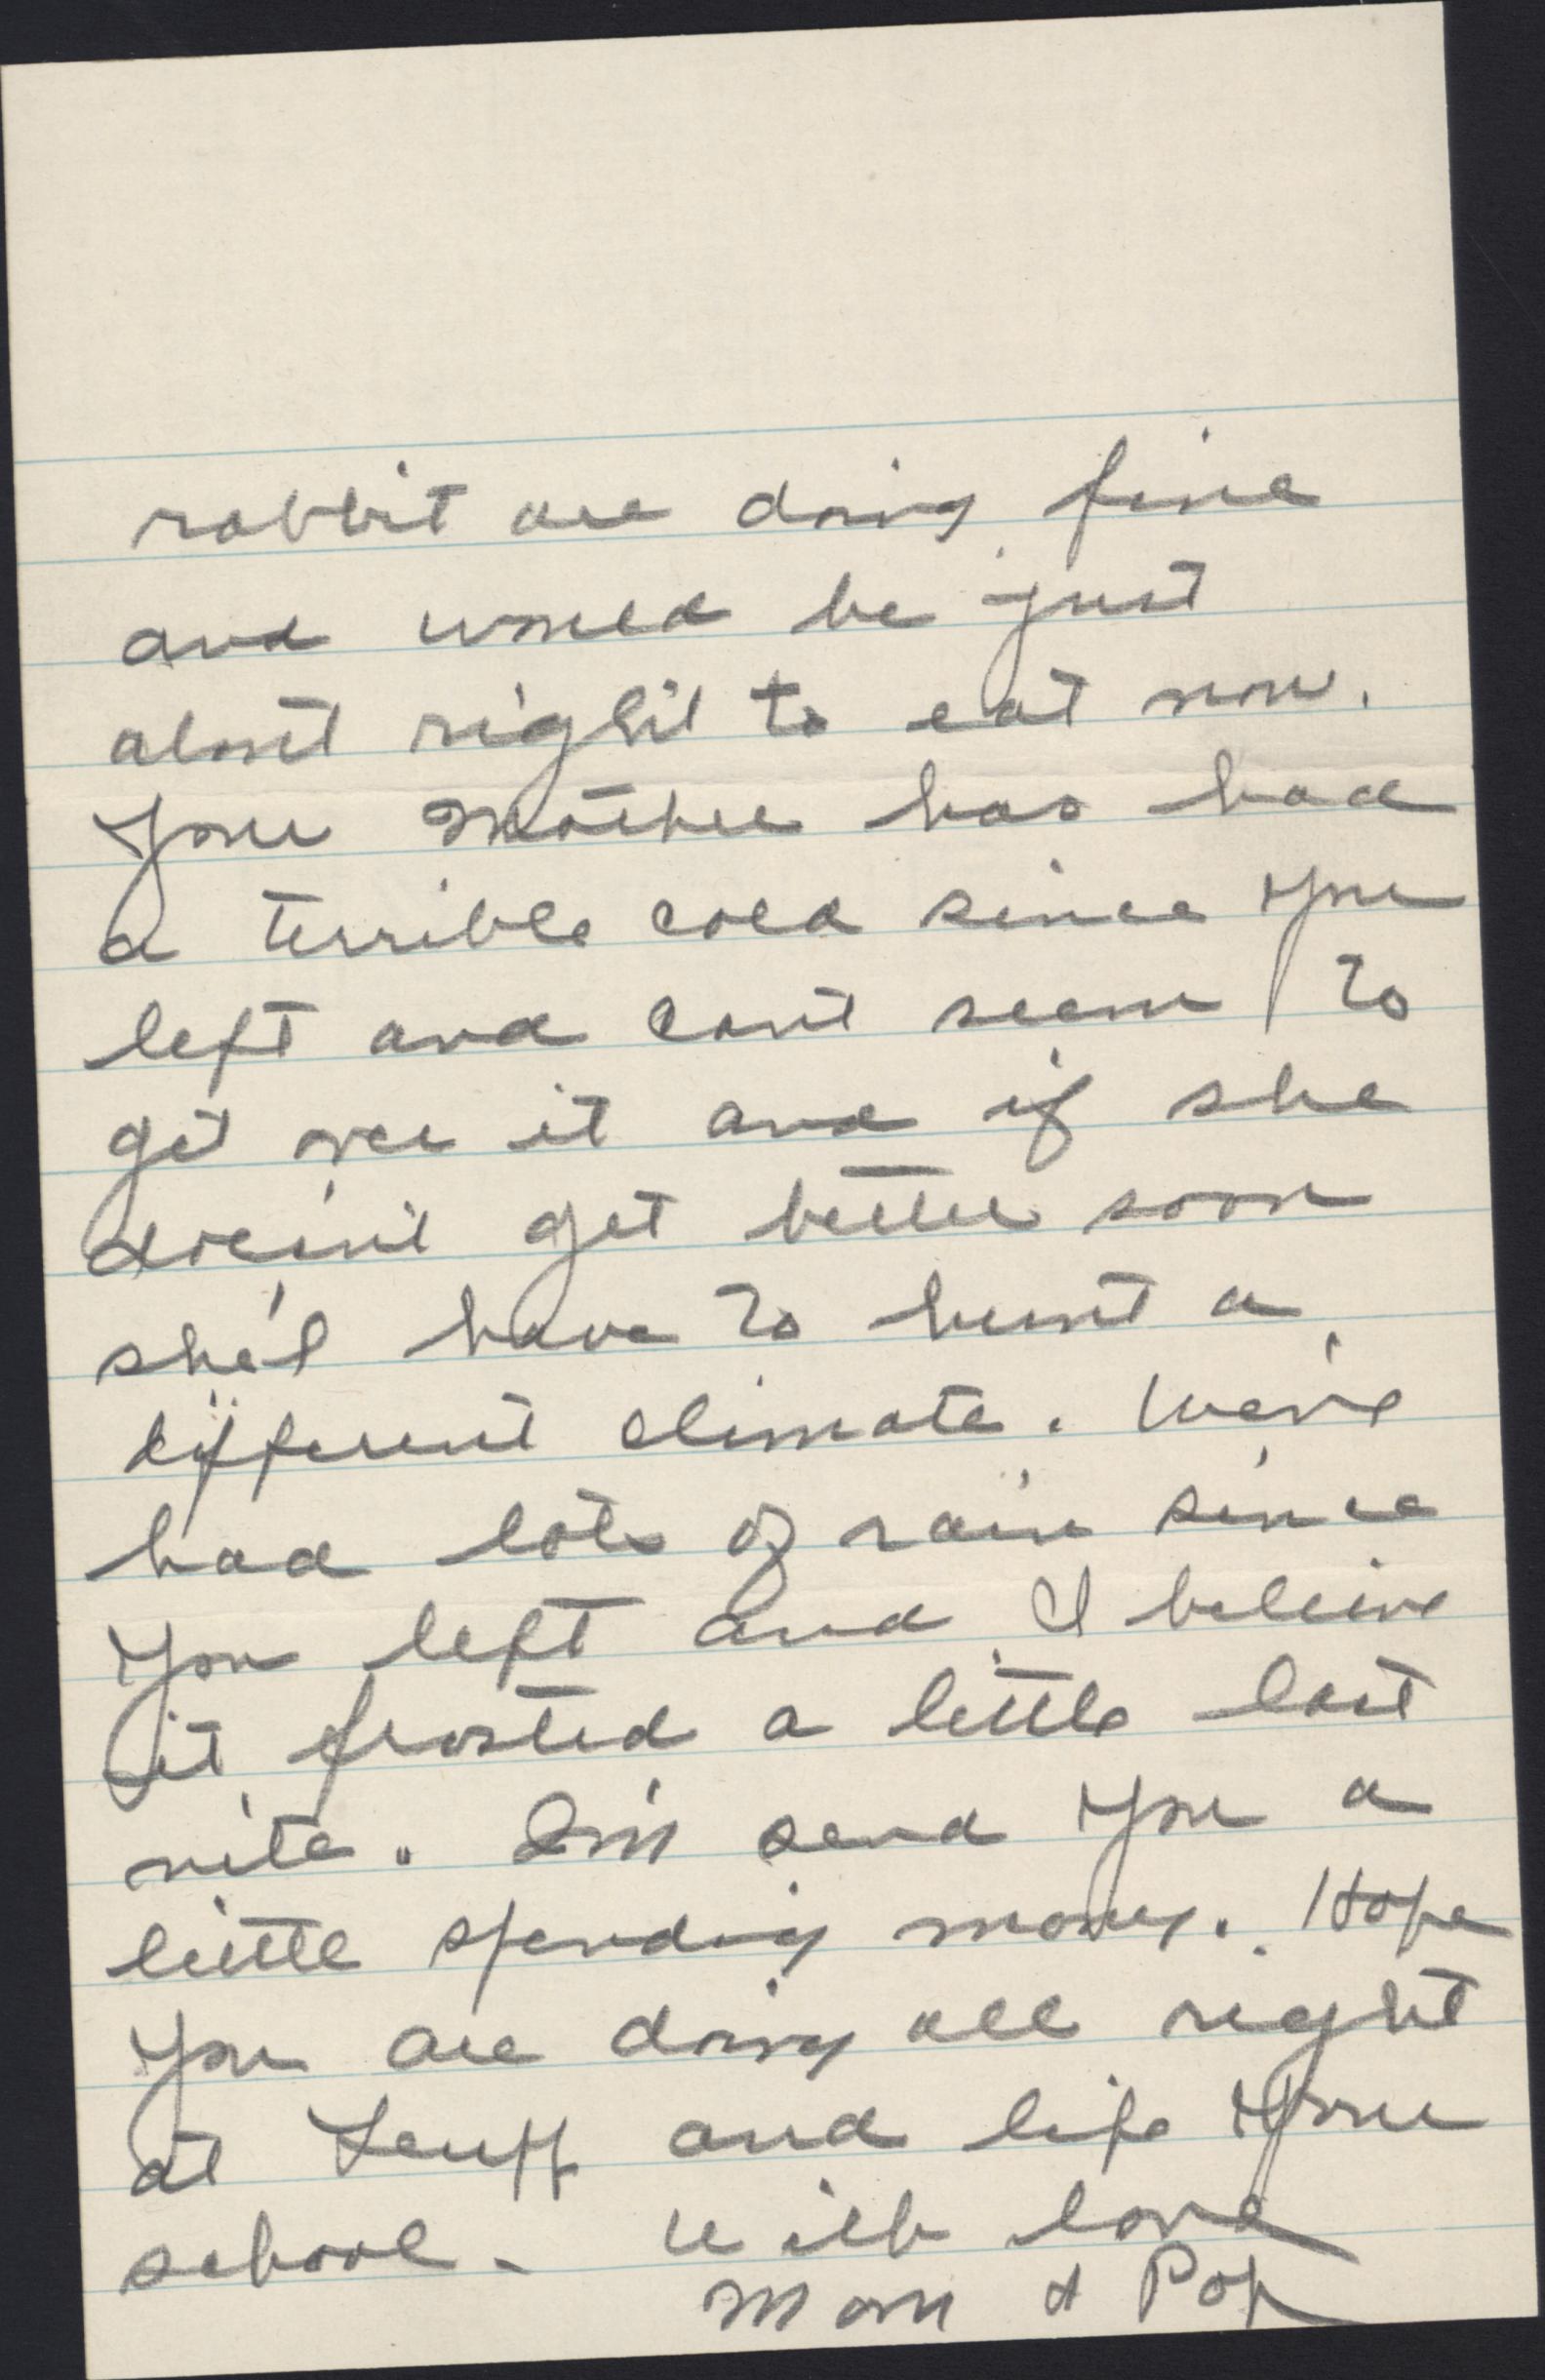 rabbit are doing fine
and would be just
about right to eat now.
Your Mother has had
a terrible cold since you
left and can't seem to
get over it and if she
doesn't get better soon
she'l have to hunt a
different climate. We've
had lots of rain since
you left and I beleive
it frosted a little last
nite. I'm send you a
little spending money. Hope
you are doing all right
at and life your
school - With love
Mom & Pop